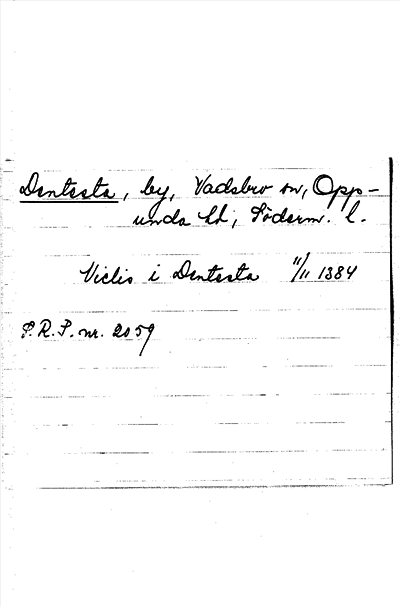 Dentesta, by, Vadsbro sn, Opp-
unda hd, Söderm. l.
Viclis i Dentesta 11/11 1384
S.R.P. nr. 2059